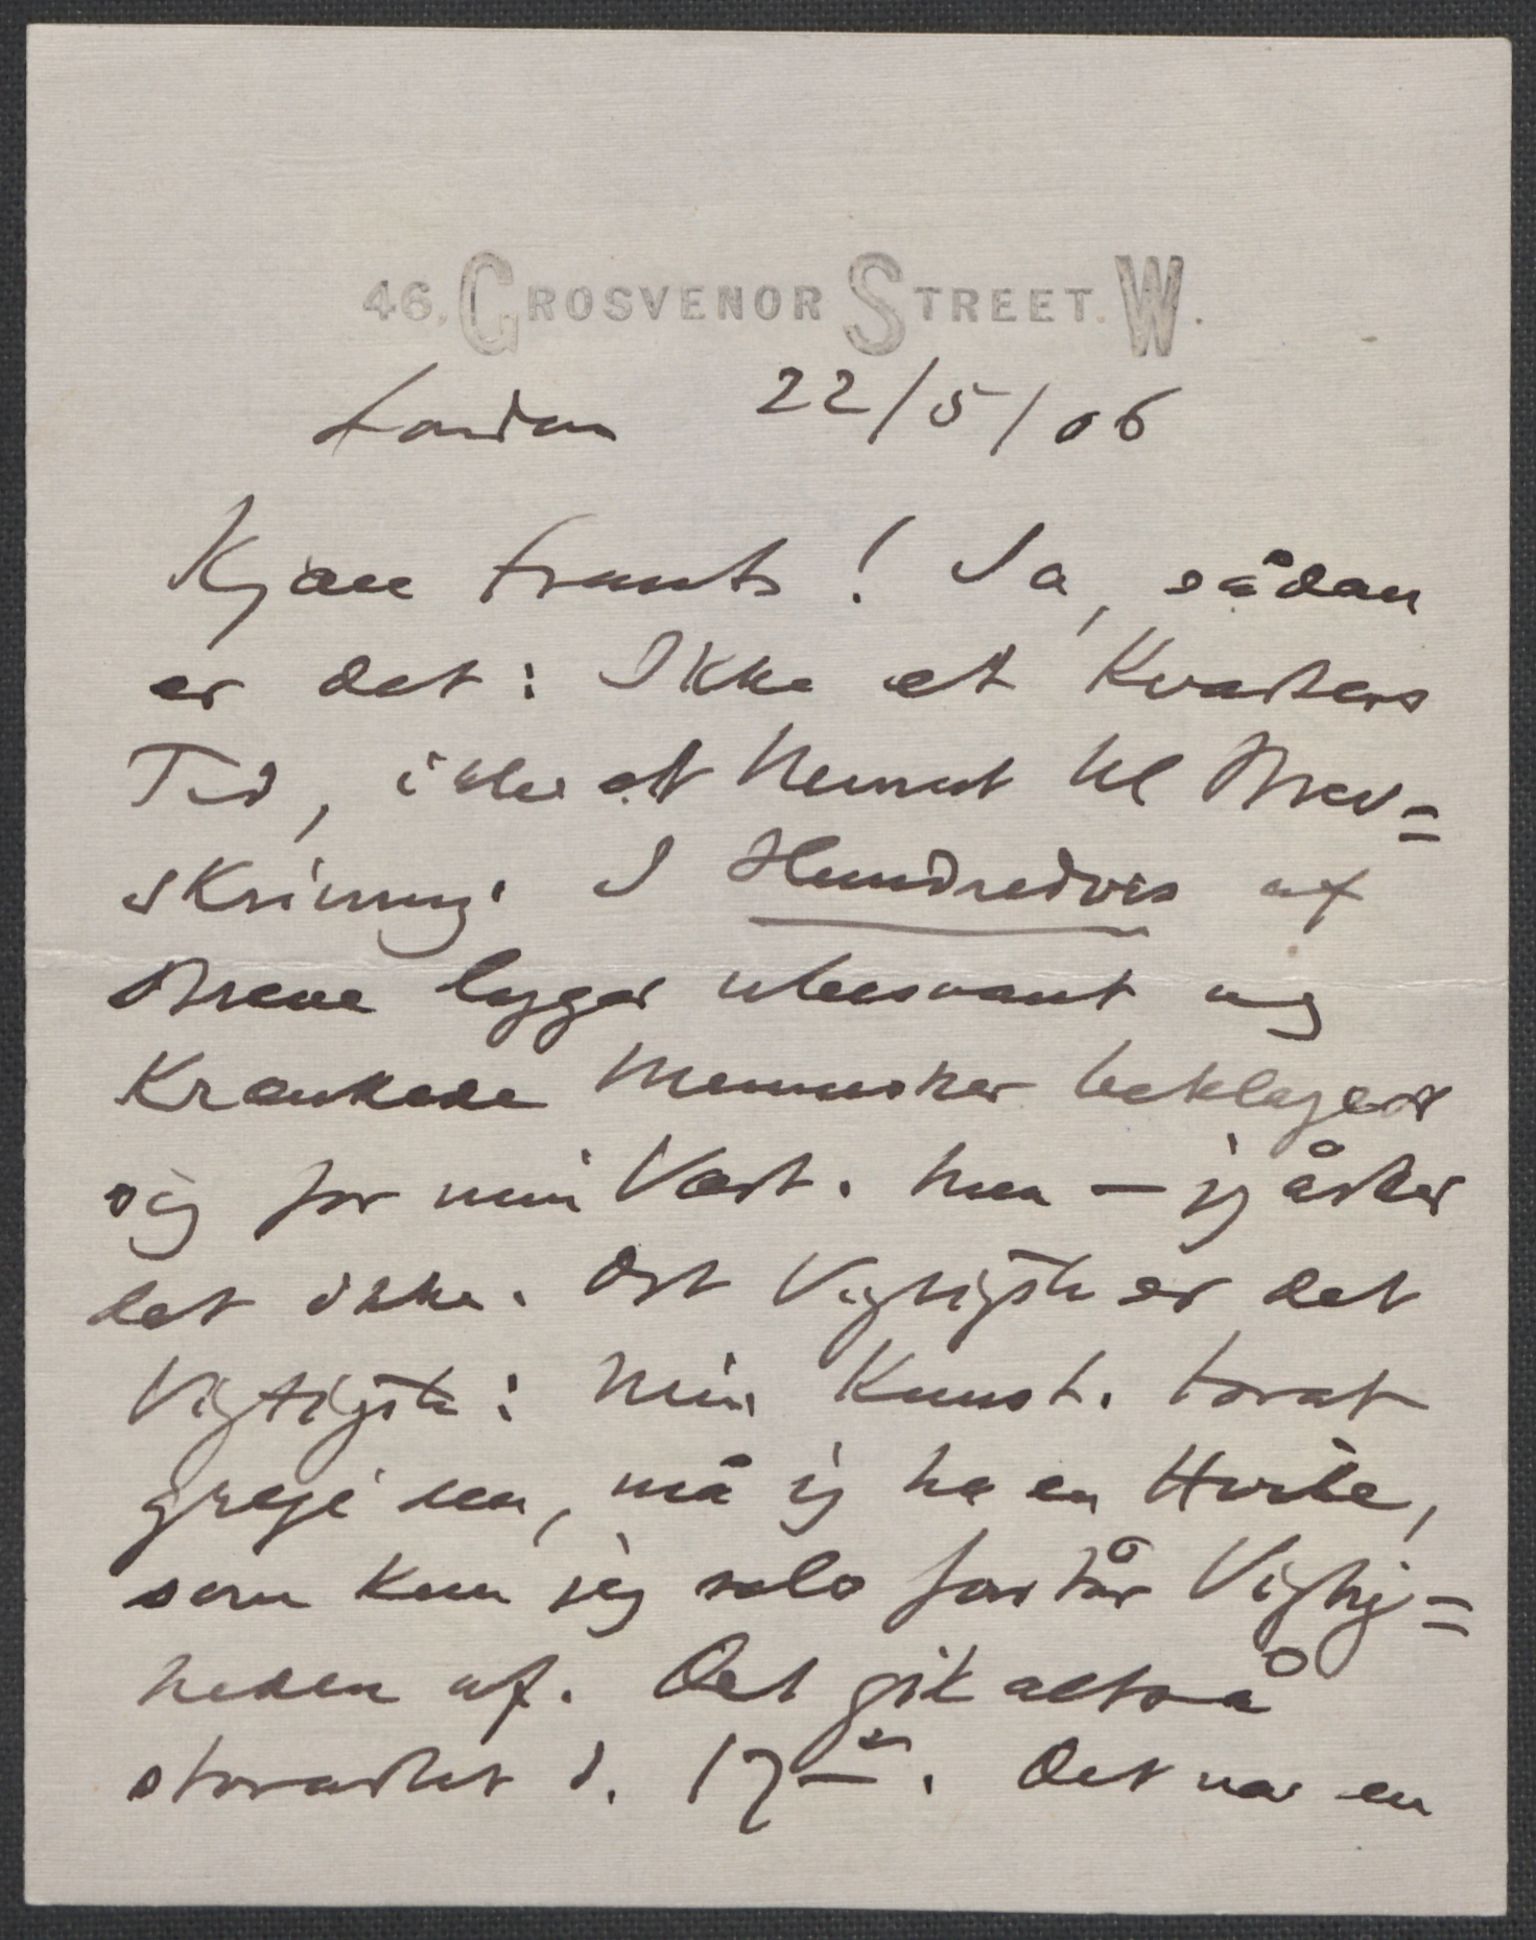 46, GROSVENOR STREET. W.
London 22/5/06
Kjære Frants! Ja, sådan
er det: Ikke et Kvarters
Tid, ikke et Minut til Brev=
skrivning. I Hundredvis af
Breve ligger ubesvaret og
Krænkede Mennesker beklager
sig for min Vært. Men – jeg
det ikke. Det Vigtigste er det
Vigtigste: Min Kunst. Forat
greje den, må jeg ha en Hvile,
som kun jeg selv forstår Vigtig=
heden af. Det gik altså
storartet d. 17de. Det var en